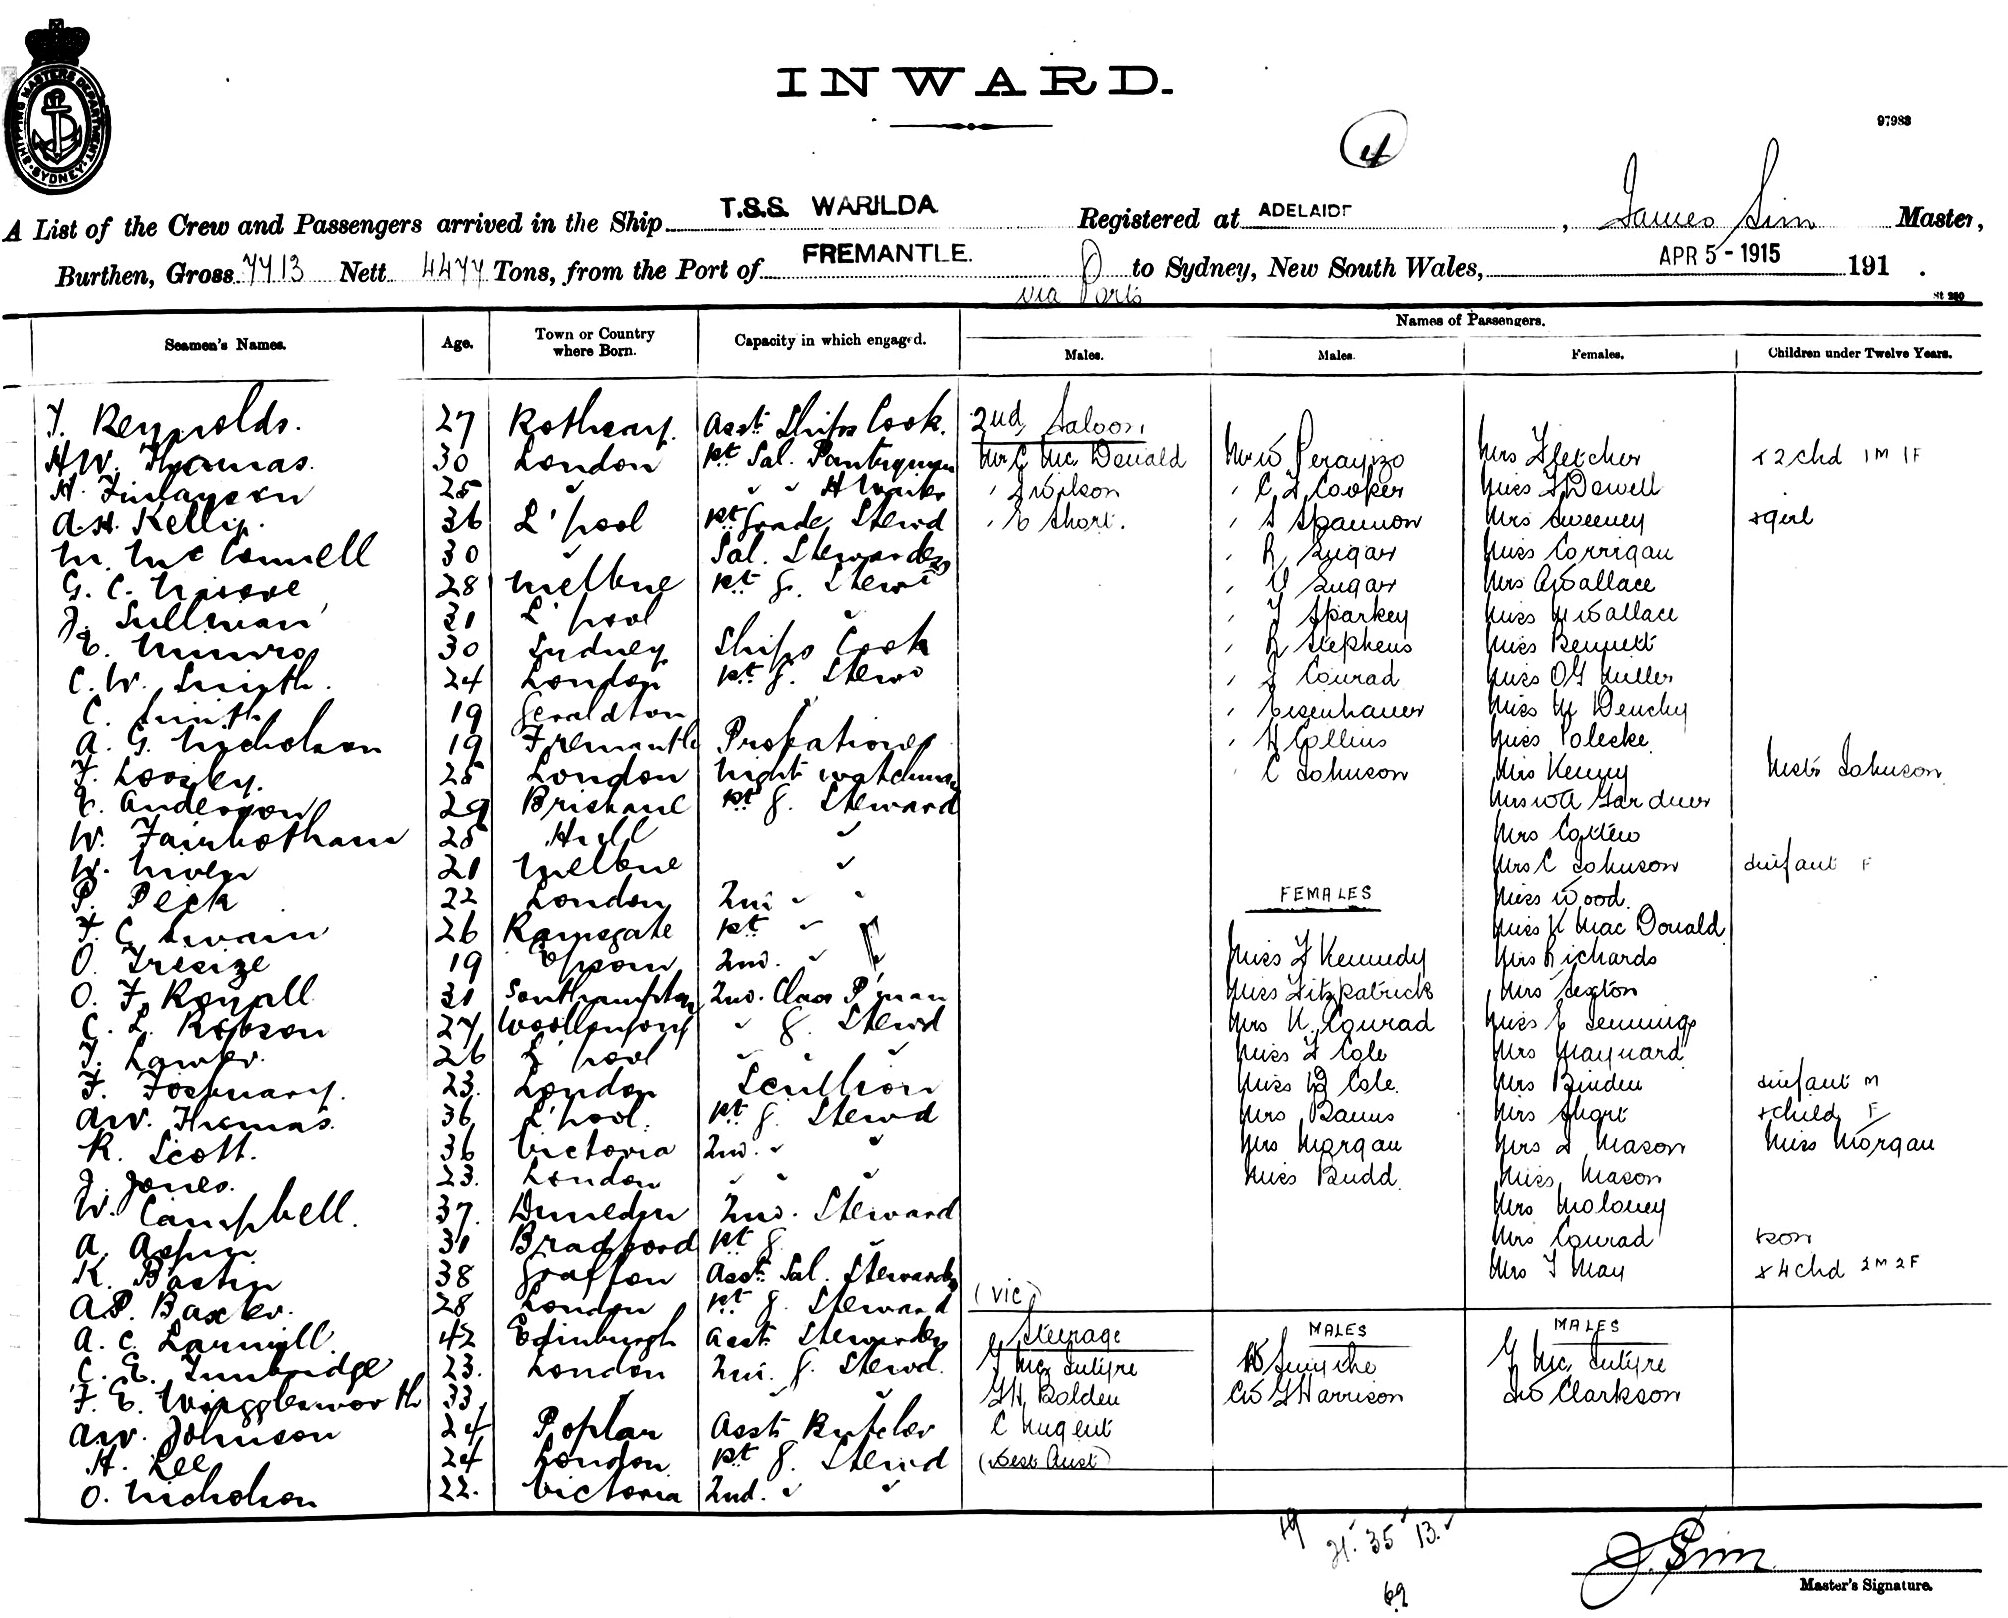 SHIPPING MASTERS DEPARTMENT SYDNEY
INWARD.
97983
4
A List of the Crew and Passengers arrived in the Ship T.S.S. WARILDA Registered at ADELAIDE, James Sim Master,
Burthen, Gross 7713 Nett 4477 Tons, from the Port of FREMANTLE. to Sydney, New South Wales, APR 5 - 1915 191 .
via Ports
St 280
Names of Passengers.
Seamen's Names. Age. Town or Country where Born. Capacity in which engaged. Males. Males. Females. Children under Twelve Years.
Reynolds. 27 Rothesay. Asst Ships Cook. 2nd Saloon
H.W. Thomas. 30 London 1st Sal. Pantryman Mr C Mc Donald Mr W Mrs Fletcher & 2 Chd 1M 1F
H. Finlayson 25 " " " Wilson " C Cooker Miss Dowell
A.H. Kelly. 36 L'pool 1st Grade Stewd " E Short. " S Spannon Mrs Sweeney & girl
M. Mc Connell 30 " Sal. Stewardess " R Sugar Miss Corrigan
G. C. 28 Melbne 1st g. Stewd " Sugar Mrs Wallace
J. Sullivan 31 L'pool " " Sparkey Miss Wallace
E. Munro 30 Sydney Ships Cook " R Stephens Miss Bennett
C. W. Smith. 24 London 1st g. Stewd " J Conrad Miss O G Miller
C. Smith 19 Geraldton " " Eisenhauer Miss M Denchy
A. G. Nicholson 19 Fremantle Probationer " H Collins Miss Polecke
F. Loosley. 25 London Night watchman " C Johnson Mrs Kenny Mstr Johnson
E. Anderson 29 Brisbane 1st g. Steward Mrs W A Gardner
W. Fairbotham 25 Hull " Mrs
W. Niven 21 Melbne " Mrs C Johnson & infant F
P. Peck 22 London 2nd " " FEMALES Miss Wood.
F. C. Swain 26 Ramsgate 1st " Miss K Mac Donald
O. Tresize 19 Epsom 2nd. " Miss Kennedy Mrs Richards
O. F. Royall 31 Southampton 2nd. Class P'man Miss Fitzpatrick Mrs Sexton
C. L. Robson 27 " g. Stewd Mrs K. Conrad Miss E Jennings
Lawler. 26 L'pool " " Miss Cole Mrs Maynard
F. 23. London Scullion Miss Cole. Mrs Binden & infant M
A.W. Thomas. 36 L'pool. 1st g. Stewd Mrs Banns Mrs Short & child F
R. Scott. 36 Victoria 2nd. " " Mrs Morgan Mrs Mason Miss Morgan
J. Jones. 23. London " " " Miss Budd. Miss Mason
W. Campbell. 37. Dunedin 2nd. Steward Mrs Moloney
A. Aspin 31 Bradford 1st g. " Mrs Conrad & son
K. Bastin 38 Grafton Asst. Sal. Stewardess Mrs May & 4 Chd 2M 2F
A.P. Baxter. 28 London 1st g. Steward (Vic)
A. C. 42 Edinburgh Asst Stewardess Steerage MALES MALES
C. E. Tunbridge 23. London 2nd. g. Stewd. Mc Intyre W Smythe Mc Intyre
F. E. Wigglesworth 33. " " " G H Bolden Harrison Clarkson
A.W. Johnson 24 Poplar Asst Butcher C Nugent
H. Lee 24 London 1st g. Stewd (West Aust)
O. Nicholson 22. Victoria 2nd. " "
19 21. 35 13.
69
J. Sim
Master's Signature.